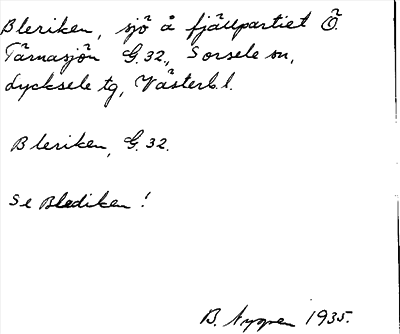 Bleriken, sjö å fjällpartiet Ö.
Tärnasjön G.32., Sorsele sn,
Lycksele tg, Västerb.l.
Bleriken, G.32.
Se Blediken!
B. 1935.